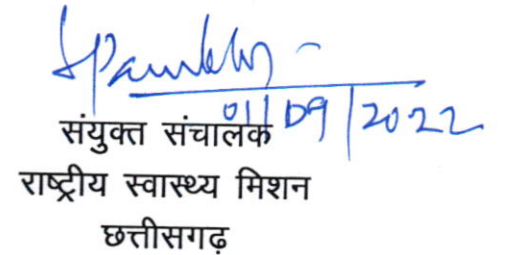 01/09/2022
संयुक्त संचालक
राष्ट्रीय स्वास्थ्य मिशन
छत्तीसगढ़